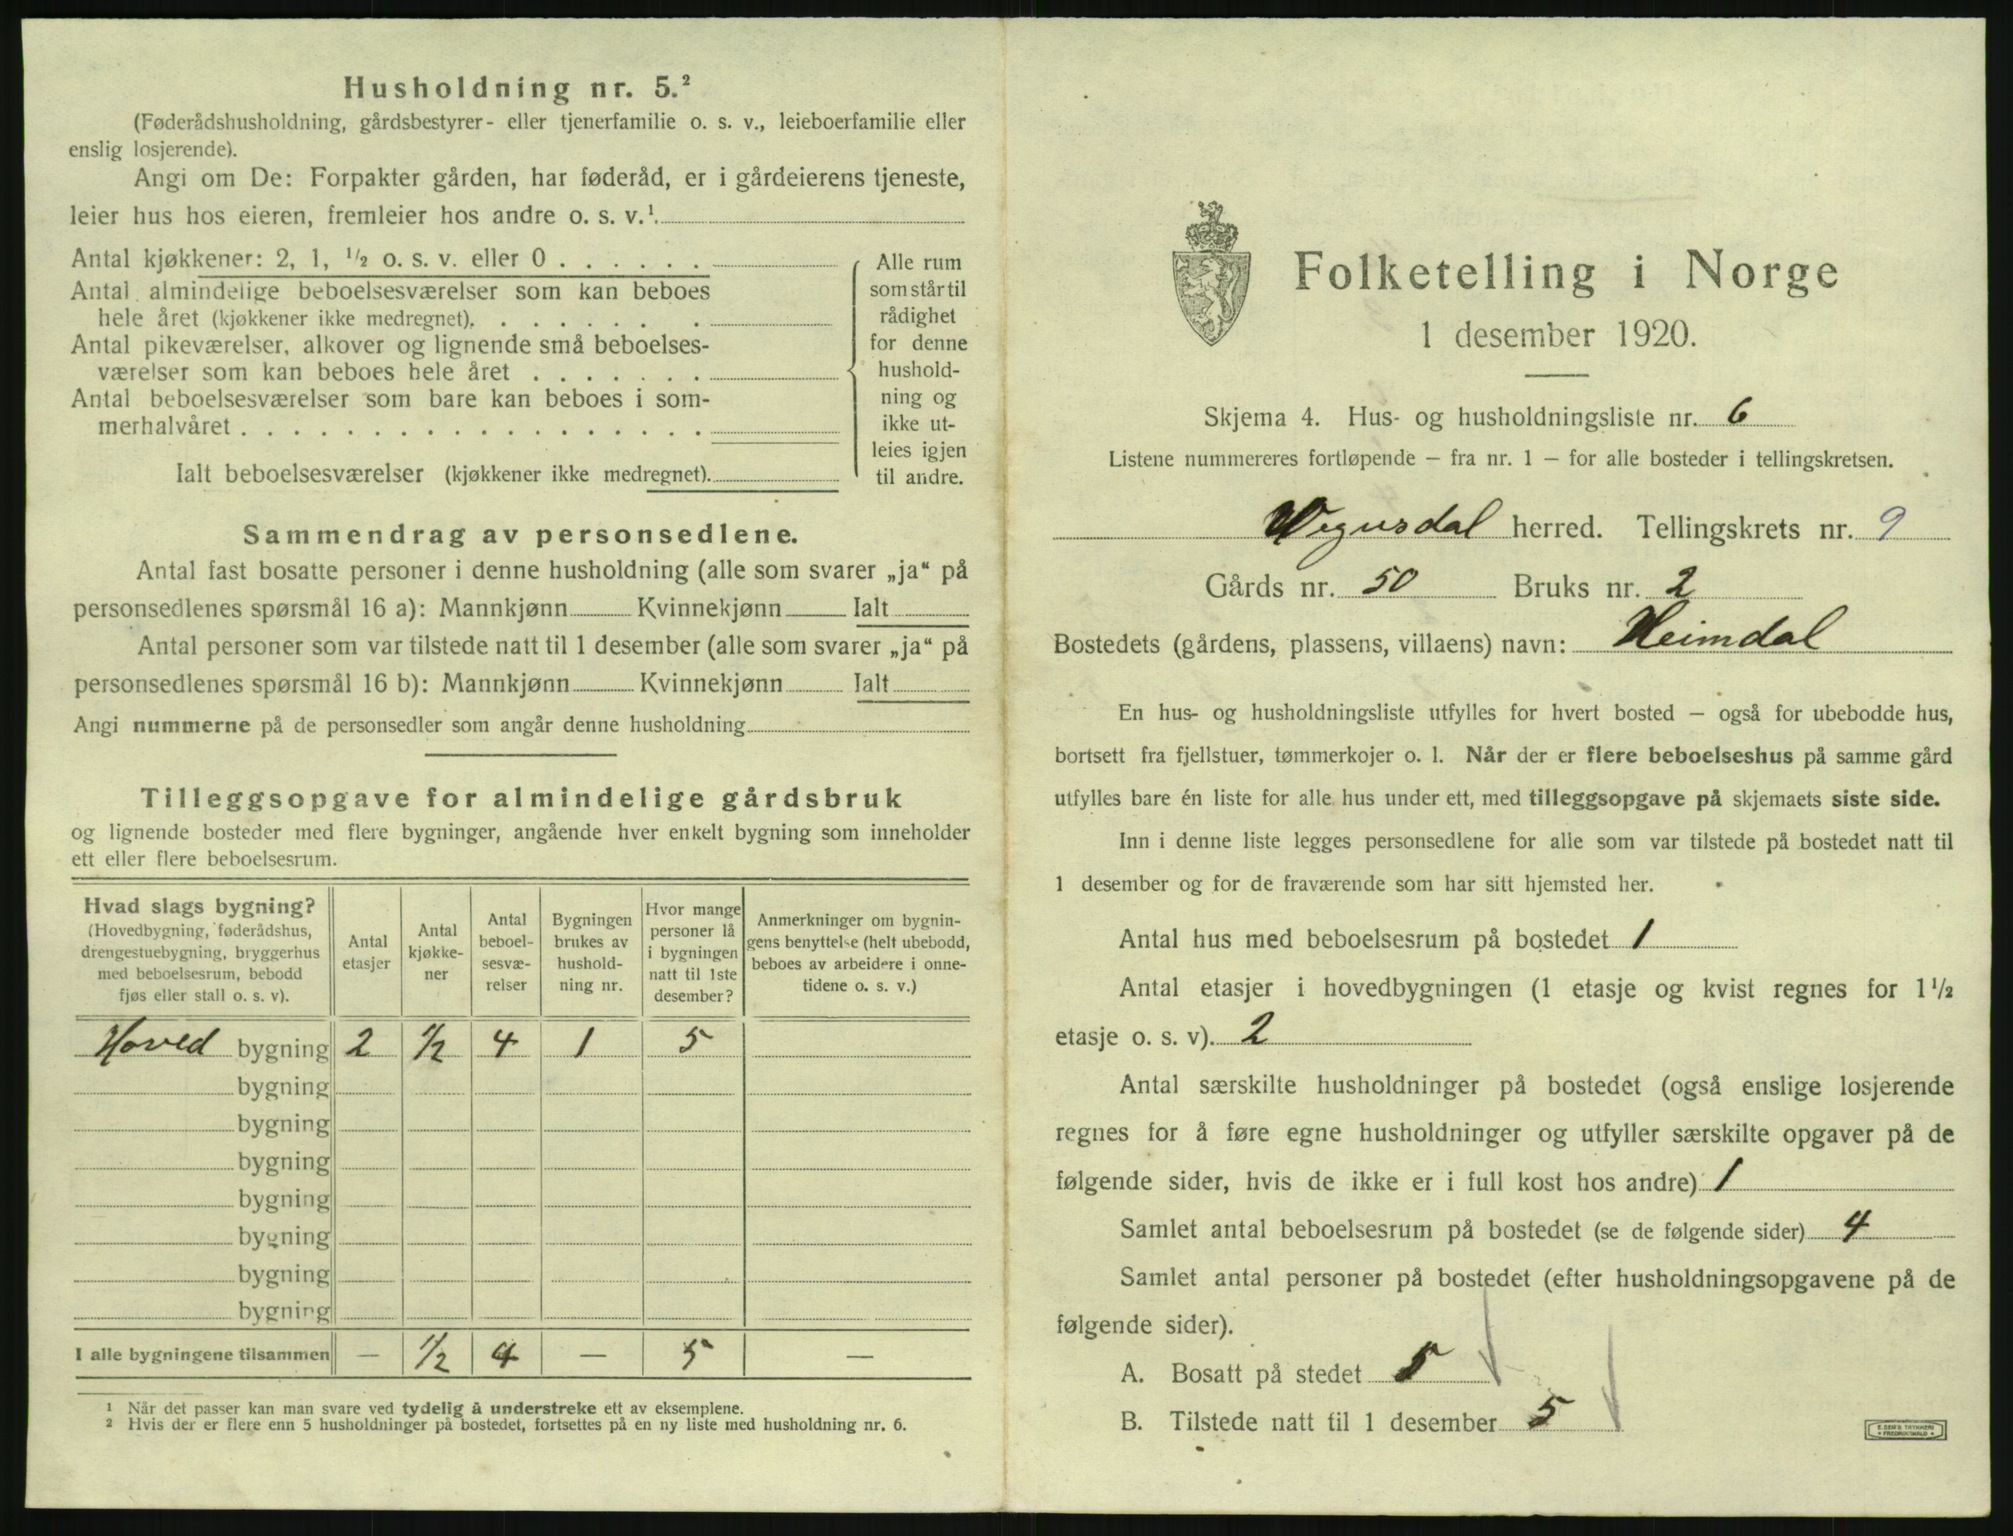 Husholdning nr. 5.²
(Føderådshusholdning, gårdsbestyrer- eller tjenerfamilie o. s. v., leieboerfamilie eller
enslig losjerende).
Angi om De: Forpakter gården, har føderåd, er i gårdeierens tjeneste,
leier hus hos eieren, fremleier hos andre o. s. v.¹
Antal kjøkkener: 2, 1, ½ o. s. v. eller 0
Antal almindelige beboelsesværelser som kan beboes
hele året (kjøkkener ikke medregnet).
Antal pikeværelser, alkover og lignende små beboelses-
værelser som kan beboes hele året
Antal beboelsesværelser som bare kan beboes i som-
merhalvåret
Ialt beboelsesværelser (kjøkkener ikke medregnet).
Alle rum
som står til
rådighet
for denne
hushold-
ning og
ikke ut-
leies igjen
til andre.
Sammendrag av personsedlene.
Antal fast bosatte personer i denne husholdning (alle som svarer „ja“ på
personsedlenes spørsmål 16 a): Mannkjønn Kvinnekjønn Ialt
Antal personer som var tilstede natt til 1 desember (alle som svarer „ja“ på
personsedlenes spørsmål 16 b): Mannkjønn Kvinnekjønn Ialt
Angi nummerne på de personsedler som angår denne husholdning
Tilleggsopgave for almindelige gårdsbruk
og lignende bosteder med flere bygninger, angående hver enkelt bygning som inneholder
ett eller flere beboelsesrum.
Hvad slags bygning?
(Hovedbygning, føderådshus,
drengestuebygning, bryggerhus
med beboelsesrum, bebodd
fjøs eller stall o. s. v).
Antal
etasjer
Antal
kjøkke-
ner
Antal
beboel-
sesvæ-
relser
Bygningen
brukes av
hushold-
ning nr.
Hvor mange
personer lå
i bygningen
natt til 1ste
desember?
Anmerkninger om bygnin-
gens benyttelse (helt ubebodd,
beboes av arbeidere i onne-
tidene o. s. v.)
Hoved bygning 2 ½ 4 1 5
bygning
bygning
bygning
bygning
bygning
bygning
bygning
I alle bygningene tilsammen — ½ 4 — 5 —
¹ Når det passer kan man svare ved tydelig å understreke ett av eksemplene.
² Hvis der er flere enn 5 husholdninger på bostedet, fortsettes på en ny liste med husholdning nr. 6.
Folketelling i Norge
1 desember 1920.
Skjema 4. Hus- og husholdningsliste nr. 6
Listene nummereres fortløpende — fra nr. 1 — for alle bosteder i tellingskretsen.
Vegusdal herred. Tellingskrets nr. 9
Gårds nr. 50 Bruks nr. 2
Bostedets (gårdens, plassens, villaens) navn: Heimdal
En hus- og husholdningsliste utfylles for hvert bosted — også for ubebodde hus,
bortsett fra fjellstuer, tømmerkojer o. l. Når der er flere beboelseshus på samme gård
utfylles bare én liste for alle hus under ett, med tilleggsopgave på skjemaets siste side.
Inn i denne liste legges personsedlene for alle som var tilstede på bostedet natt til
1 desember og for de fraværende som har sitt hjemsted her.
Antal hus med beboelsesrum på bostedet 1
Antal etasjer i hovedbygningen (1 etasje og kvist regnes for 1½
etasje o. s. v). 2
Antal særskilte husholdninger på bostedet (også enslige losjerende
regnes for å føre egne husholdninger og utfyller særskilte opgaver på de
følgende sider, hvis de ikke er i full kost hos andre) 1
Samlet antal beboelsesrum på bostedet (se de følgende sider) 4
Samlet antal personer på bostedet (efter husholdningsopgavene på de
følgende sider).
A. Bosatt på stedet 5
B. Tilstede natt til 1 desember 5